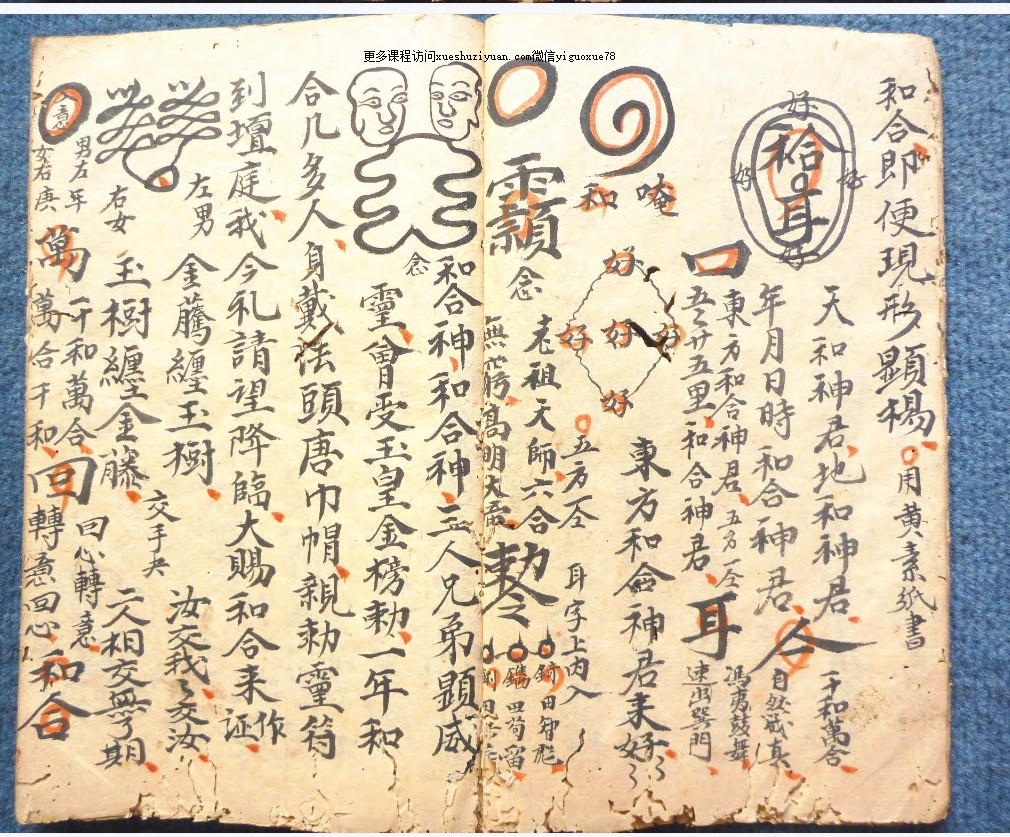 更多课程访问xueshuziyuan.com微信yiguoxue78
和合即便現形顯楊
用黄素紙書
好
好
好
好
耳
天和神君地和神君
千和萬合
年月日時和合神君
合
自然
真
東方和合神君五方仝
馮夷鼓舞
口
五五廿五里和合神君
耳
門
唵
和
好
好
好
好
好
東方和合神君来好
五方仝
耳字上内入
念
老祖天師六合
高明大帝
勅令
念
和合神和合神二人兄弟顕威
靈曾受玉皇金榜勅一年和
合几多人身戴法頭唐巾帽親勅靈符
到壇庭我今礼請望降臨大賜和合来作
证
左男
金騰纏玉樹
交手夬
汝交我我交汝
右女
玉樹纏金藤
二人相交無了期
意
男左年
女右庚
萬
千和萬合
萬合千和
回
回心轉意
轉意回心
和合